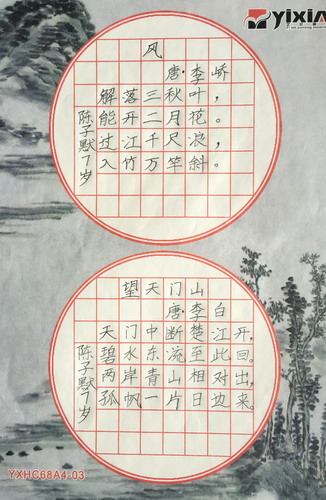 yixia
风
唐·李峤
解落三秋叶，
能开二月花。
过江千尺浪，
入竹万竿斜。
陈子默7岁
望天门山
唐·李白
天门中断楚江开，
碧水东流至此回。
两岸青山相对出，
孤帆一片日边来。
陈子默7岁
YXHC68A4-03